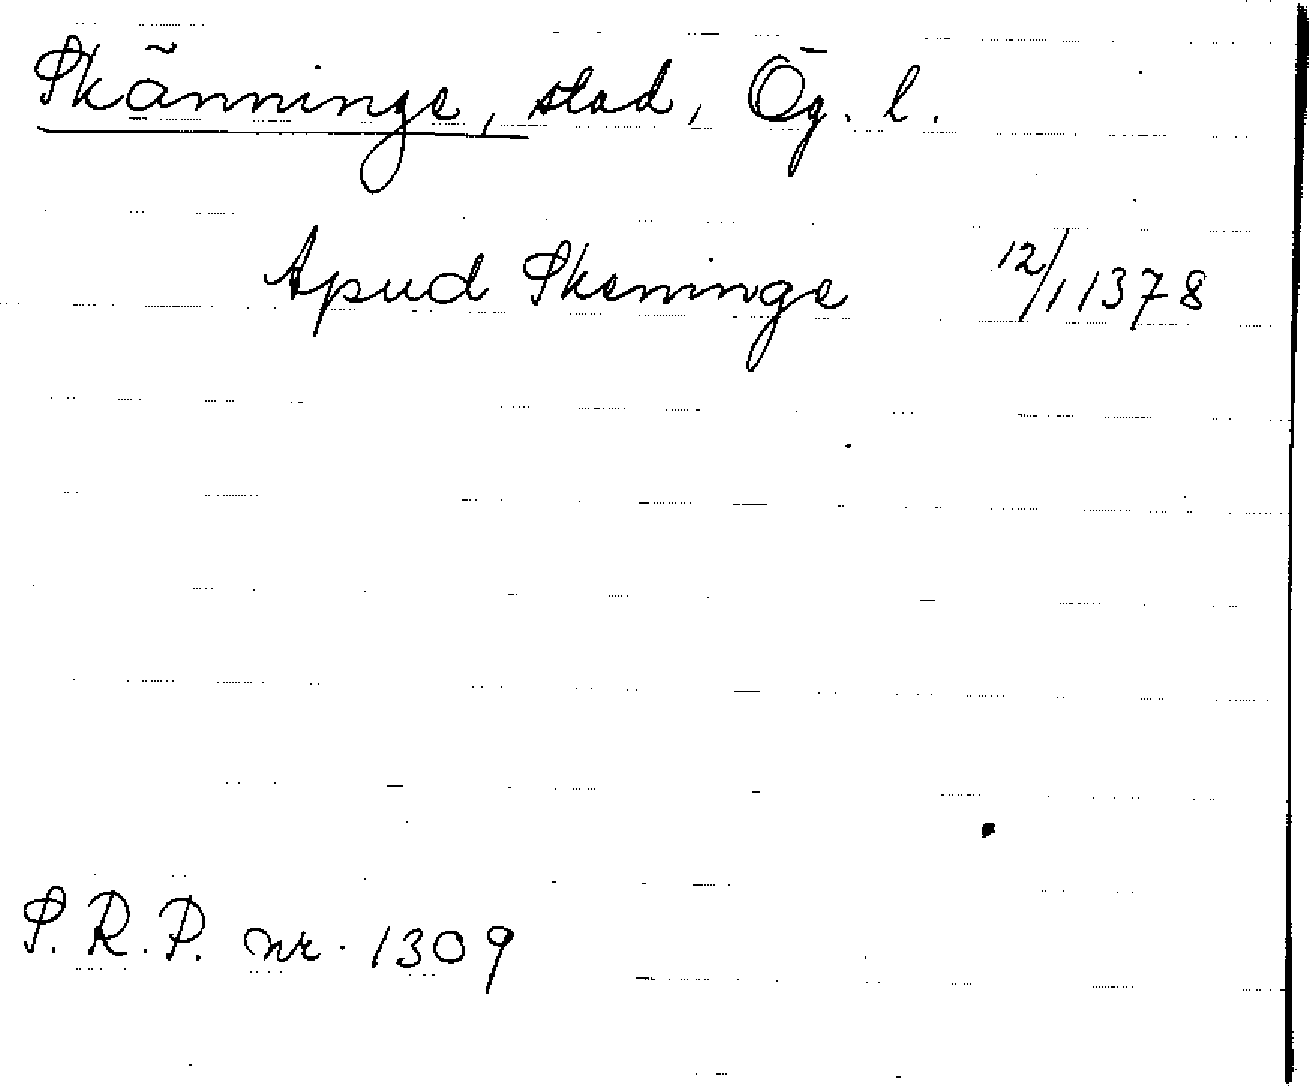 Skänninge, stad, Ög. l.
Apud Skeninge 12/1 1378
S.R.P. nr. 1309